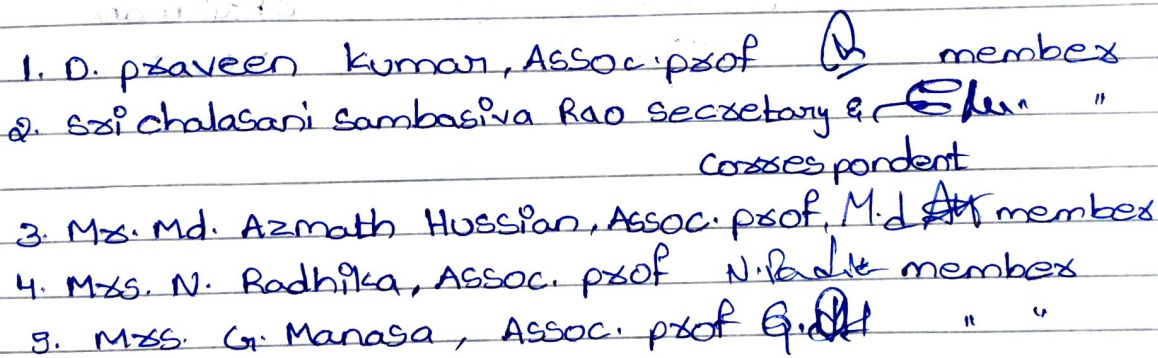 1. D. praveen kumar, Assoc. prof member
2. Sri chalasani Sambasiva Rao Secretary & "
Correspondent
3. Mr. Md. Azmath Hussian, Assoc. prof, M.d member
4. Mrs. N. Radhika, Assoc. prof N. member
5. Mrs. G. Manasa, Assoc. prof G. " "